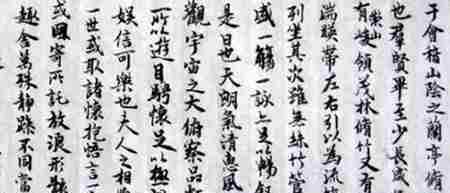 于會稽山陰之蘭亭脩
也羣賢畢至少長咸
有崇山峻領茂林脩竹又有
湍暎帶左右引以為流
列坐其次雖無絲竹管
盛一觴一詠亦足以暢叙
是日也天朗氣清惠風
觀宇宙之大俯察品
所以遊目騁懷足以極
娛信可樂也夫人之相
一世或取諸懷抱悟言一
或因寄所託放浪形骸
趣舍萬殊靜躁不同當